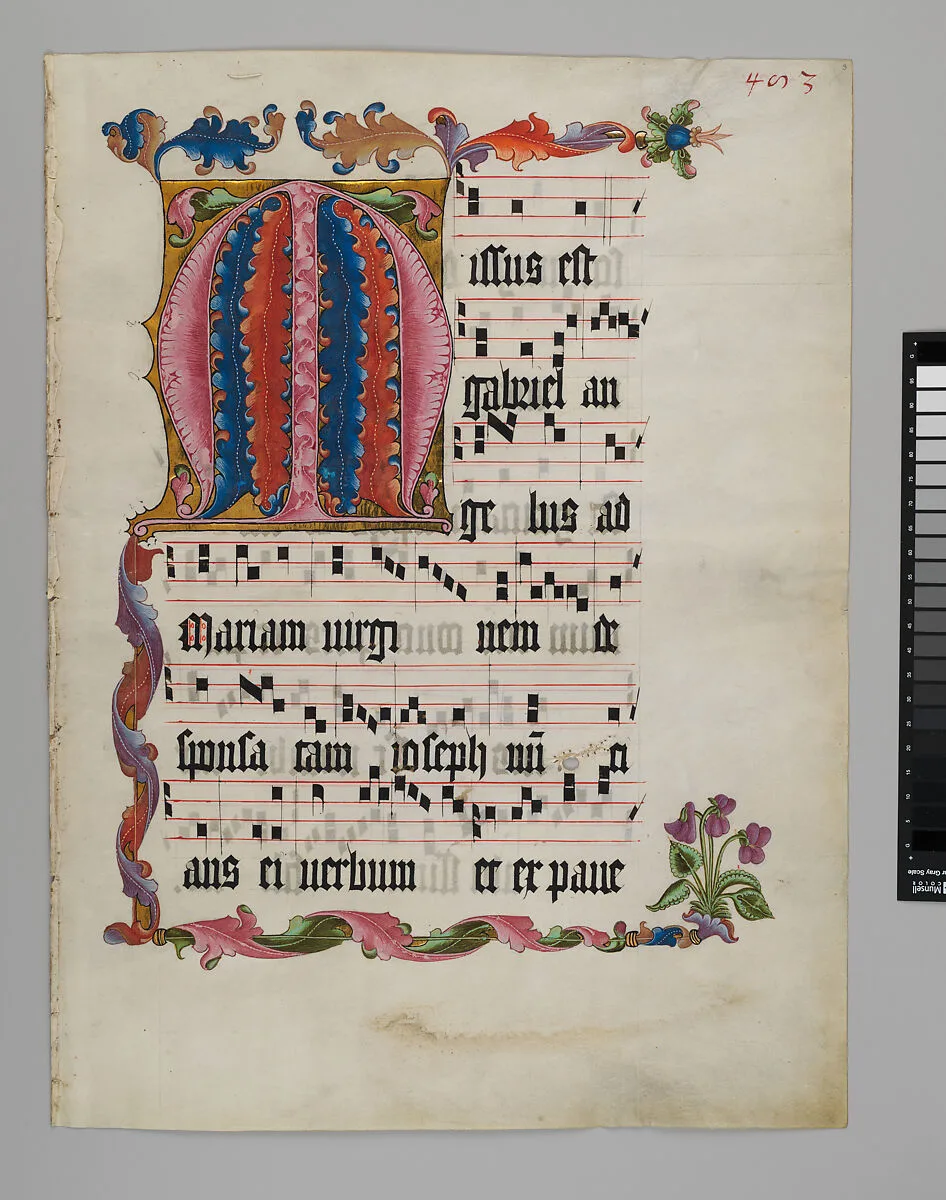 4 S 3
Missus est
gabriel an
ge lus ad
Mariam uirgi nem de
sponsa tam ioseph nu̅ ci
ans ei uerbum et expaue
Munsell
COLOR
Gray Scale